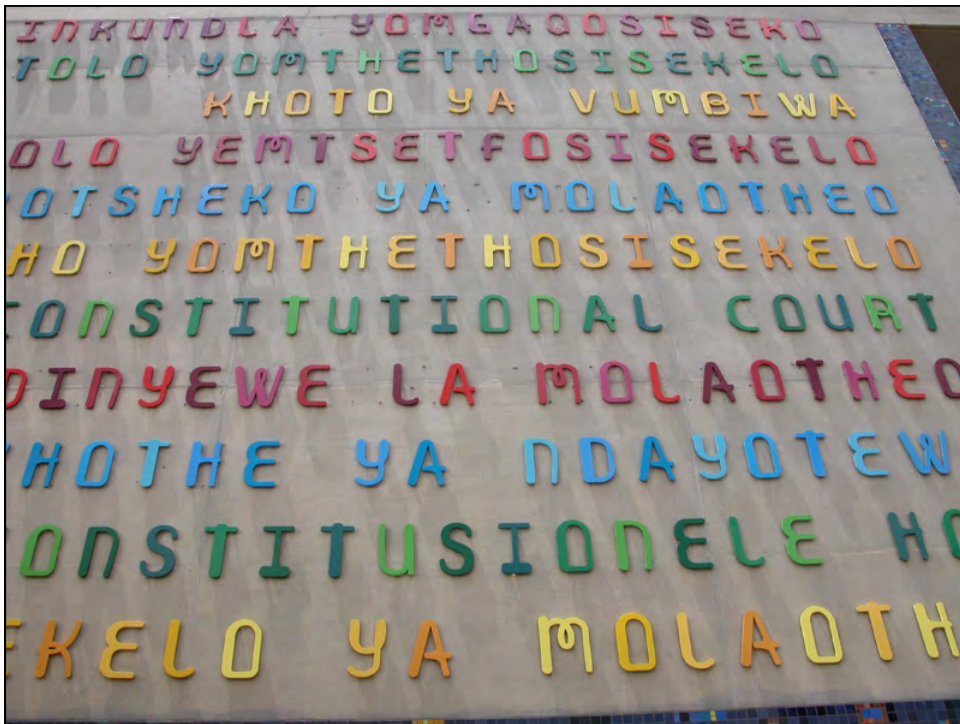 INKUNDLA YOMGAQOSISEKO
TOLO YOMTHETHOSISEKELO
KHOTO YA VUMBIWA
OLO YEMTSETFOSISEKELO
OTSHEKO YA MOLAOTHEO
HO YOMTHETHOSISEKELO
CONSTITUTIONAL COURT
DINYEWE LA MOLAOTHEO
KHOTHE YA NDAYOTEW
ONSTITUSIONELE HO
EKELO YA MOLAOTH